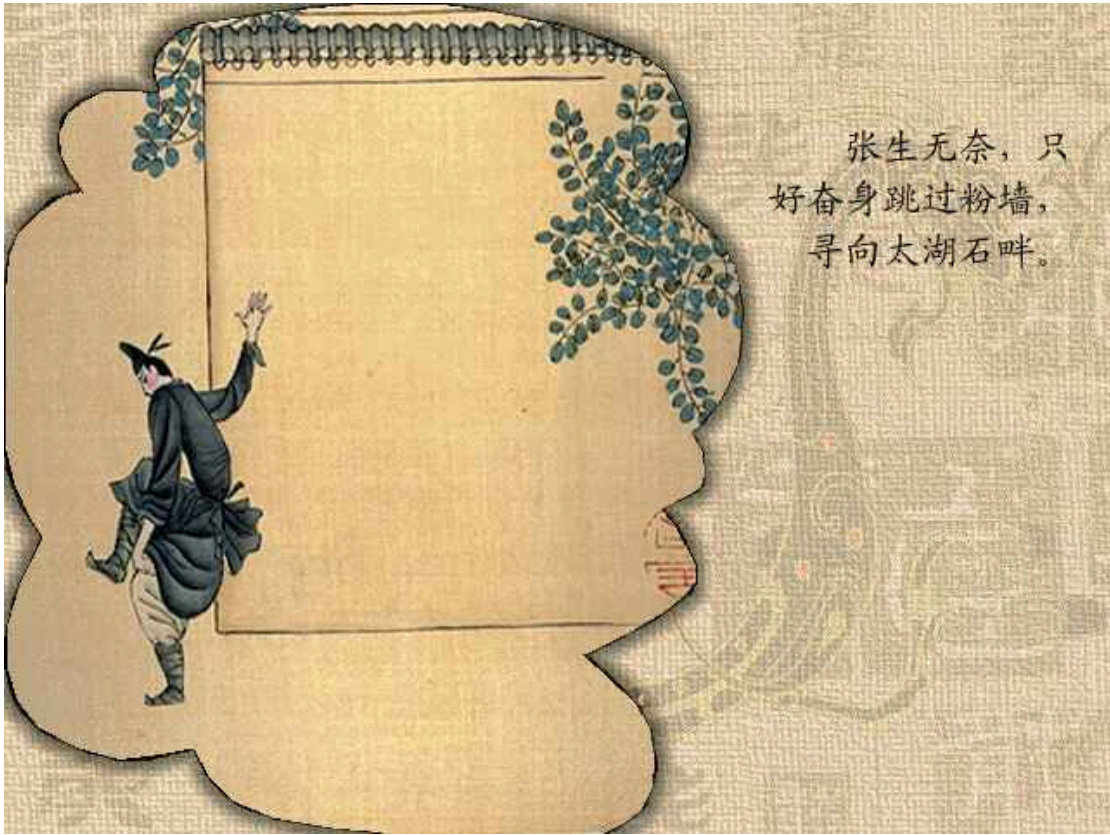 张生无奈，只
好奋身跳过粉墙，
寻向太湖石畔。